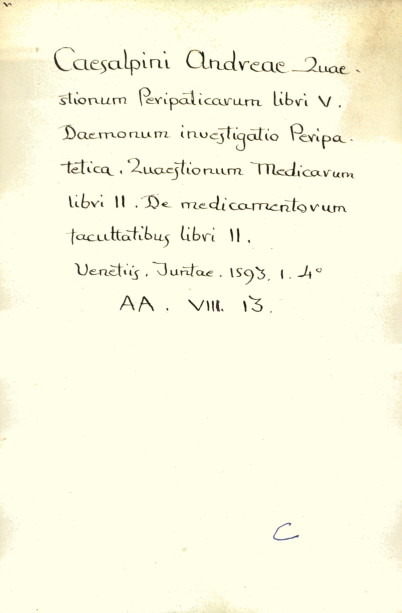 Caesalpini Andreae Quae-
stionum Peripaticarum libri V.
Daemonum investigatio Peripa-
tetica. Quaestionum Medicarum
libri II. De medicamentorum
facultatibus libri II.
Venetiis. Juntae. 1593. 1. 4°
AA. VIII. 13.
C